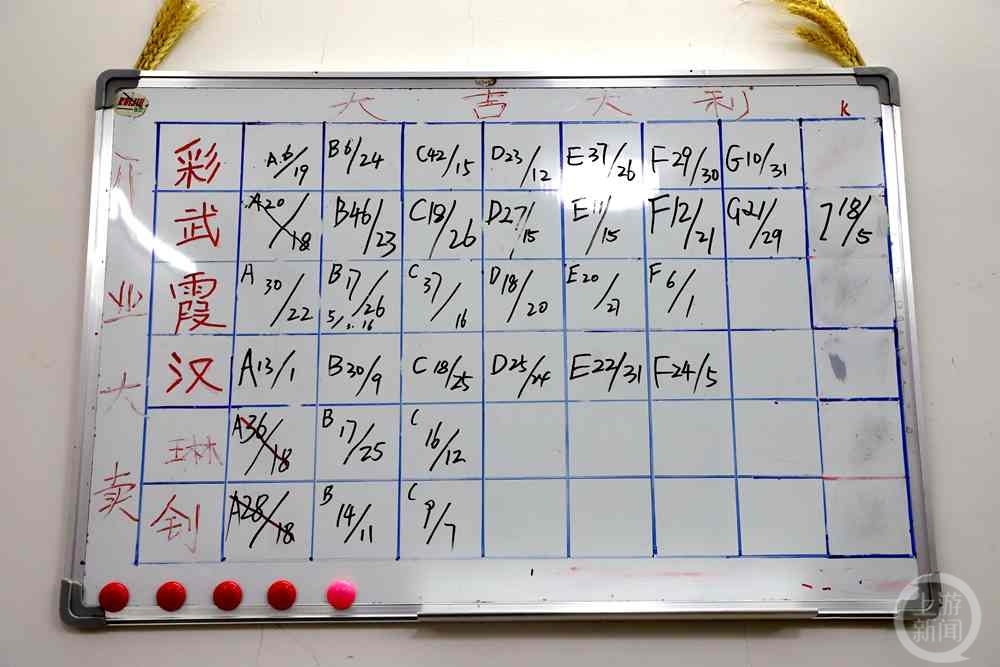 大吉大利 K
彩 A6/19 B6/24 C42/15 D23/12 E37/26 F29/30 G10/31
武 A20/18 B46/23 C18/26 D27/15 E11/15 F12/21 G21/29 18/5
霞 A30/22 B17/26 C37/16 D18/20 E20/21 F6/1
汉 A13/1 B30/9 C18/25 D25/24 E22/31 F24/5
琳 A36/18 B17/25 C16/12
钊 A28/18 B14/11 C9/7
业
大
卖
上游新闻